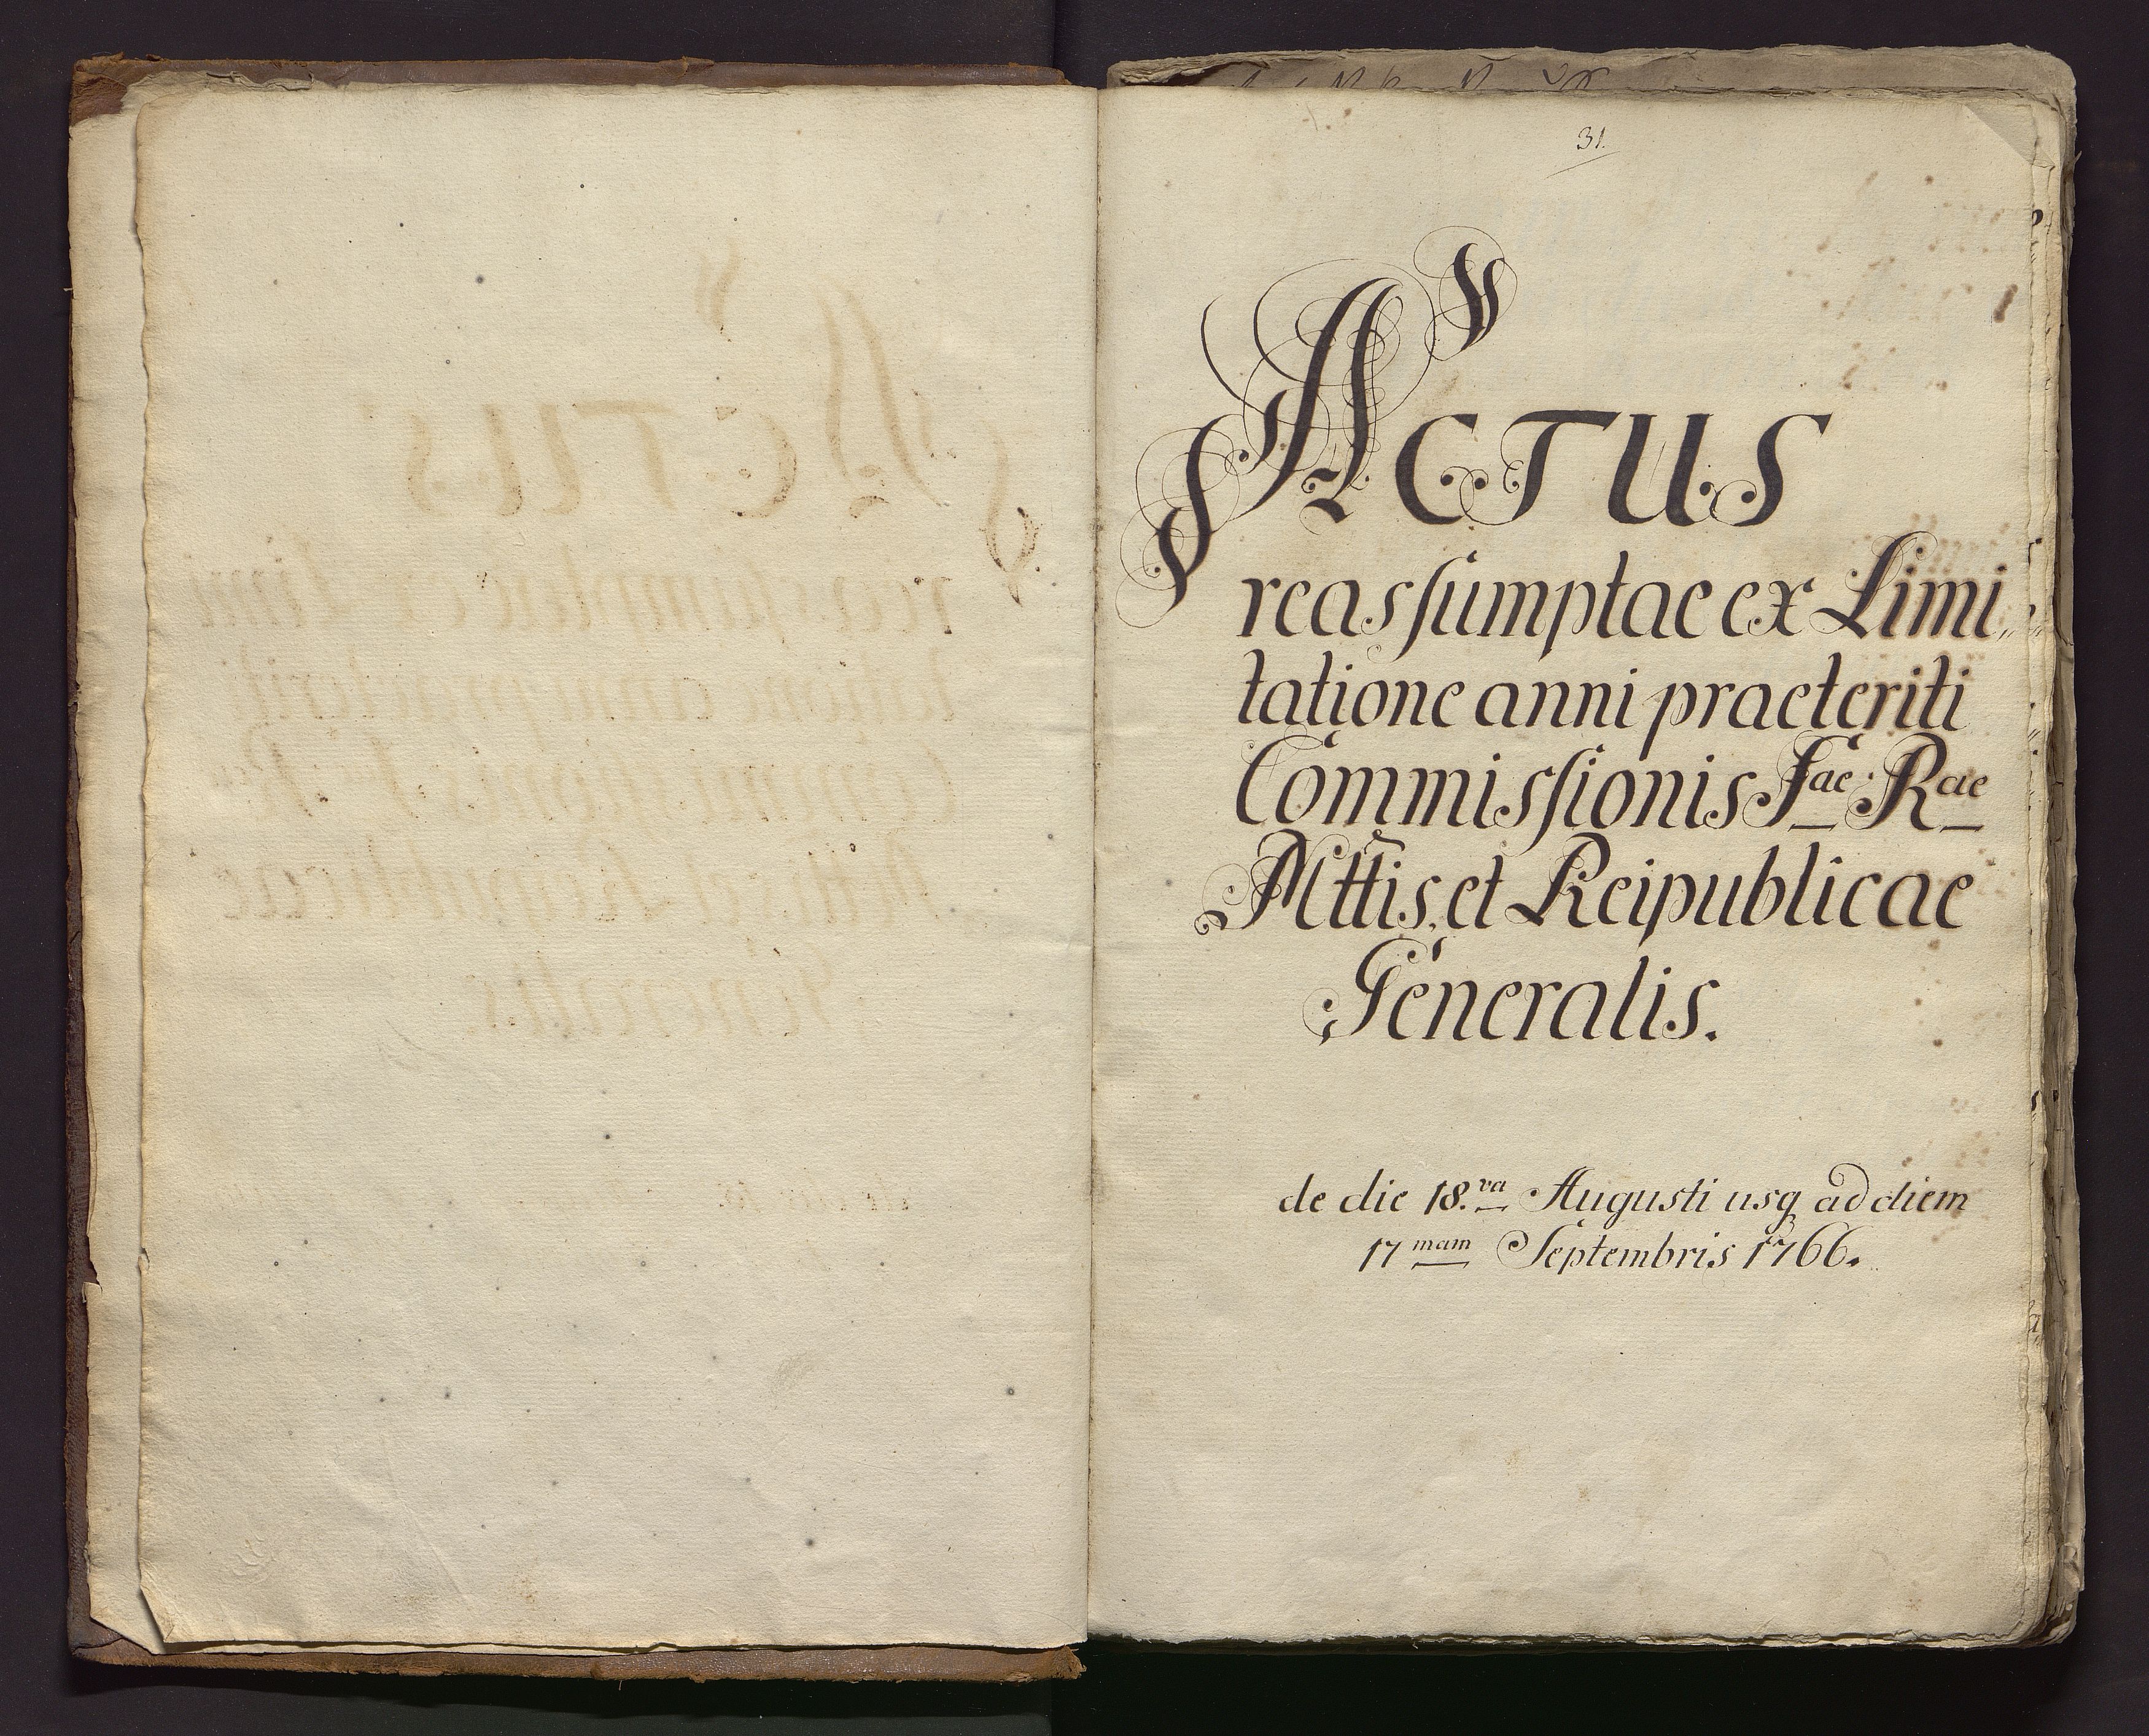 31.
ACTUS
reassumptae ex Limi„
tatione anni praeteriti
Commissionis Sae Rae
Mttis, et Reipublicae
Generalis.
de die 18.va Augusti usq ad diem
17mam Septembris 1766.